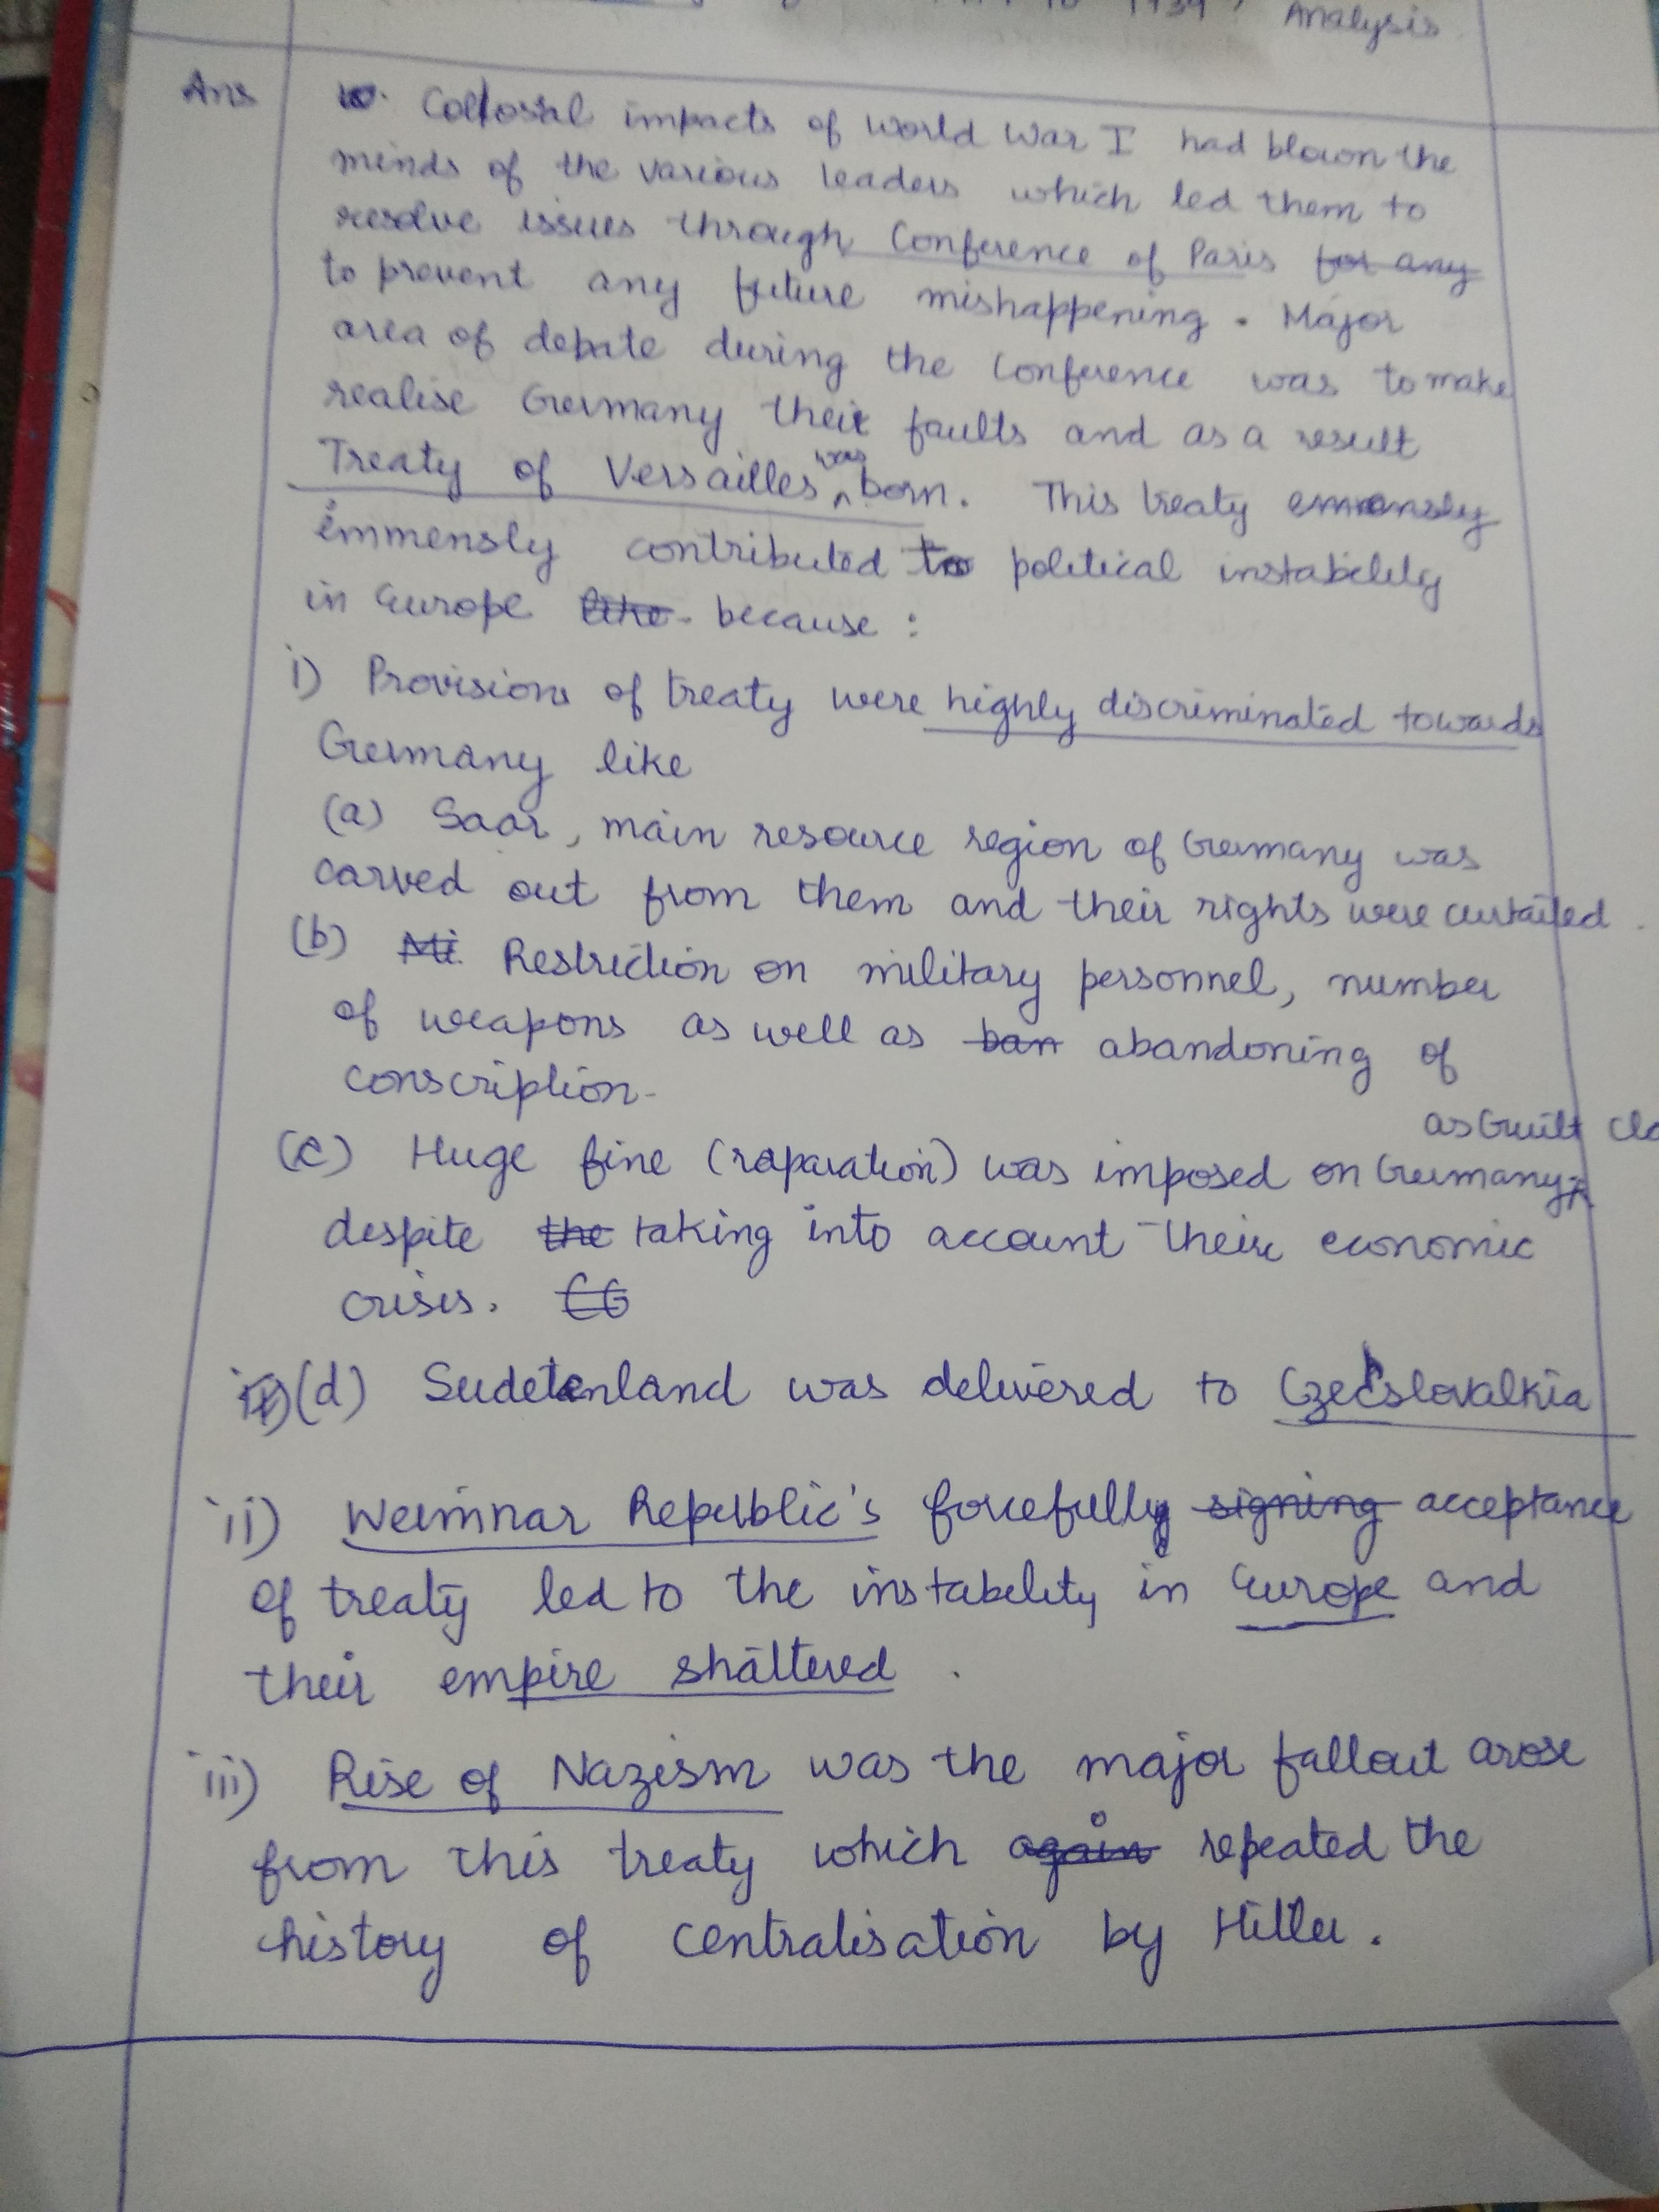 1939 ? Analysis
Ans
Collosal impacts of world War I had blown the
minds of the various leaders which led them to
resolve issues through Conference of Paris for any
to prevent any future mishappening. Major
area of debate during the Conference was to make
realise Germany their faults and as a result
Treaty of Versailles was born. This treaty emmensly
immensly contributed to political instability
in Europe like because :
i) Provisions of treaty were highly discriminated towards
Germany like
(a) Saar, main resource region of Germany was
carved out from them and their rights were curtailed.
(b) Mi Restriction on military personnel, number
of weapons as well as ban abandoning of
conscription.
as Guilt cla
(c) Huge fine (raparation) was imposed on Germany,
despite the taking into account their economic
crisis.
(d) Sudetenland was delivered to Czechslovalkia
ii) Weimnar Republic's forcefully signing acceptance
of treaty led to the instability in Europe and
their empire shattered.
iii) Rise of Nazism was the major fallout arose
from this treaty which again repeated the
history of centralisation by Hitler.